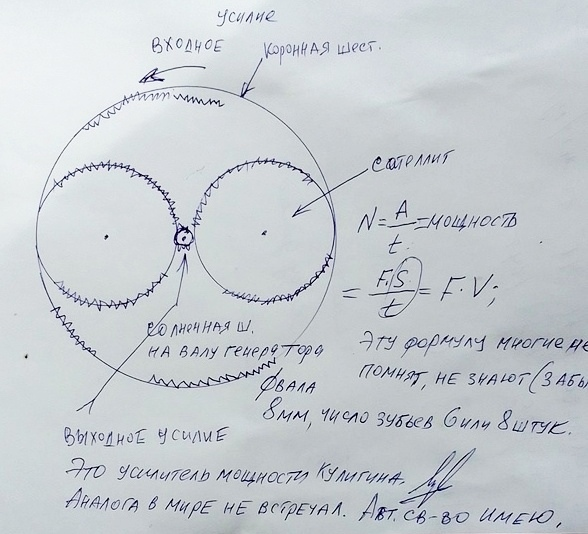 Усилие
ВХОДНОЕ
КОРОННАЯ ШЕСТ.
САТЕЛЛИТ
N = A/t = МОЩНОСТЬ
= F.S./t = F·V;
ЭТУ ФОРМУЛУ МНОГИЕ НЕ
ПОМНЯТ, НЕ ЗНАЮТ (ЗАБЫ
СОЛНЕННАЯ Ш.
НА ВАЛУ ГЕНЕРАТОРА
ФВАЛА
8ММ, ЧИСЛО ЗУБЬЕВ 6 ИЛИ 8 ШТУК.
ВЫХОДНОЕ УСИЛИЕ
ЭТО УСИЛИТЕЛЬ МОЩНОСТИ КУЛИГИНА.
АНАЛОГА В МИРЕ НЕ ВСТРЕЧАЛ. АВТ. СВ-ВО ИМЕЮ,